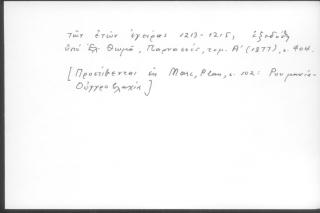 τῶν ἐτῶν ἐγείρας 1213-1215, ἐξεδόθη
ὑπὸ Ἐλ. Θωμᾶ, Παρνασσός, τομ. Α' (1877), σ. 404.
[Προστίθενται ἐκ Marc, Plan, σ. 102: Ρουμανία-
Οὐγγροβλαχία]